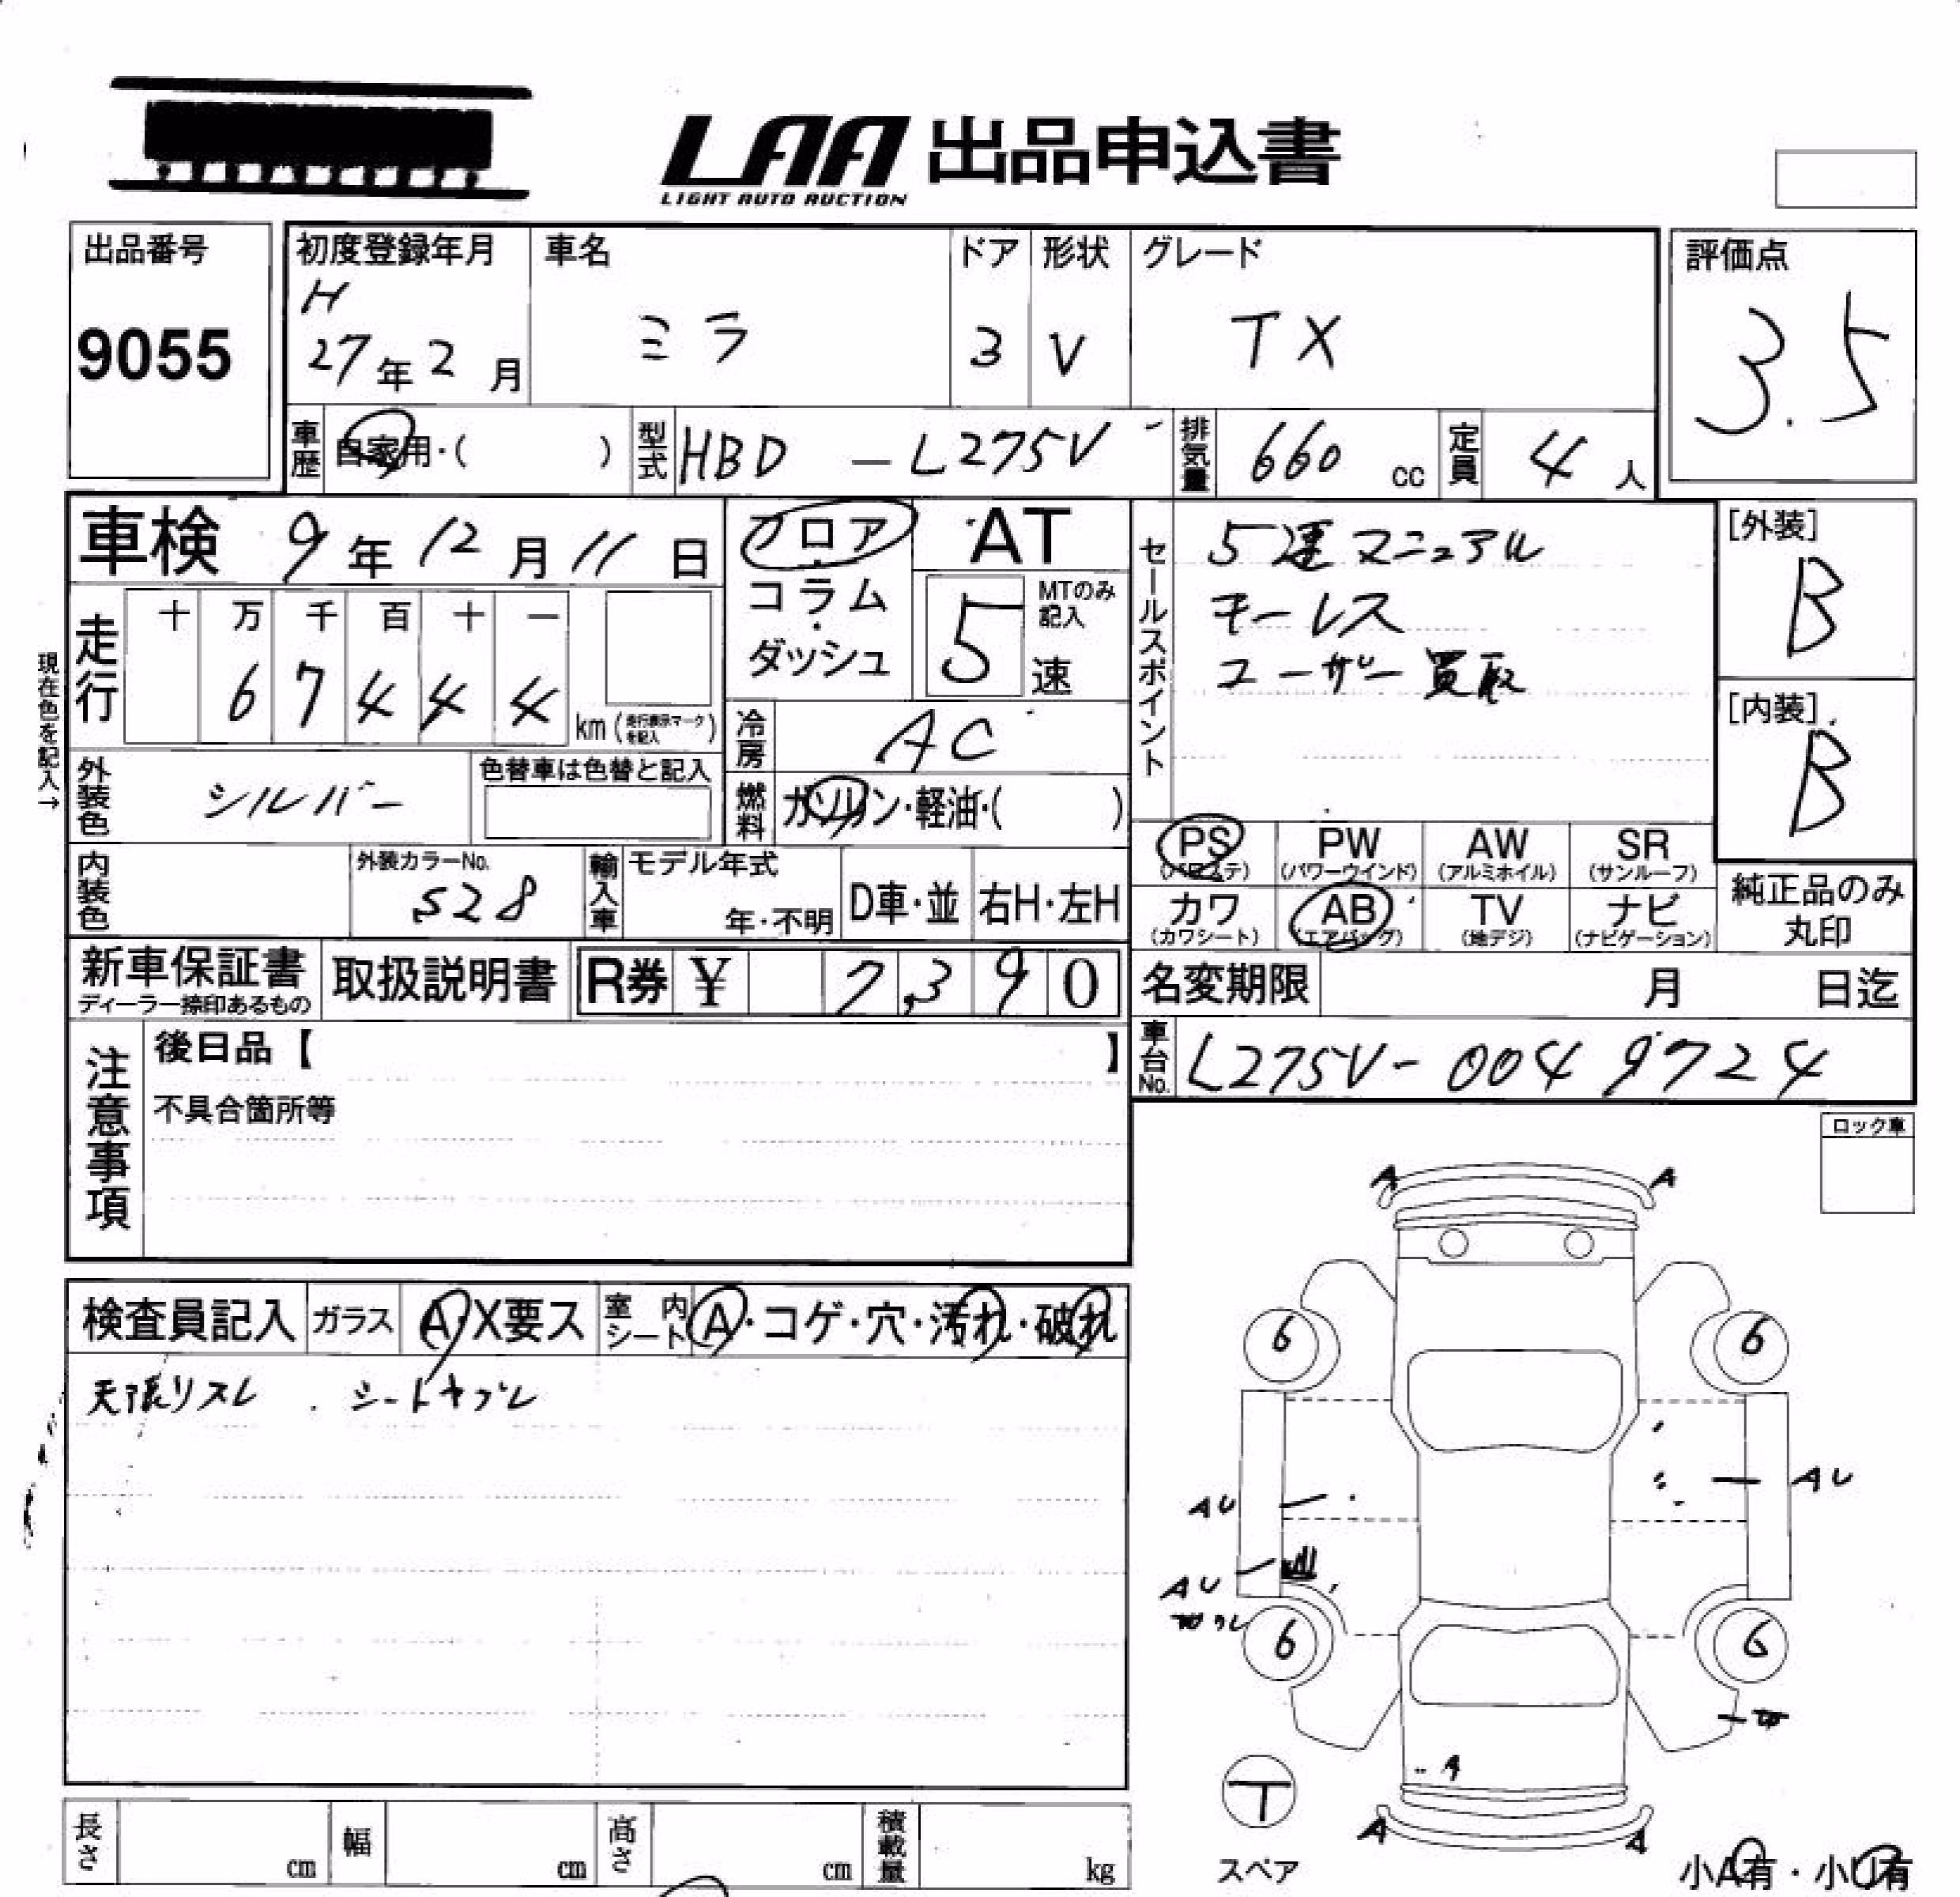 LAA 出品申込書
LIGHT AUTO AUCTION
出品番号
9055
初度登録年月
H
27年2月
車名
ミラ
ドア
3
形状
V
グレード
TX
評価点
3.5
車歴 自家用・( )
型式 HBD-L275V
排気量 660 cc
定員 4 人
車検 9年12月11日
フロア・コラム・ダッシュ
AT
5速
MTのみ記入
現在色を記入→
走行
十 万 千 百 十 一
6 7 4 4 4
km(走行表示マークを記入)
冷房 AC
外装色 シルバー
色替車は色替と記入
燃料 ガソリン・軽油・( )
内装色
外装カラーNo.
S28
輸入車
モデル年式
年・不明
D車・並
右H・左H
セールスポイント
5速マニュアル
キーレス
ユーザー買取
[外装]
B
[内装]
B
PS (パワステ)
PW (パワーウインド)
AW (アルミホイル)
SR (サンルーフ)
カワ (カワシート)
AB (エアバッグ)
TV (地デジ)
ナビ (ナビゲーション)
純正品のみ丸印
新車保証書
ディーラー捺印あるもの
取扱説明書
R券 ¥ 7,390
名変期限 月 日迄
車台No. L275V-0049724
注意事項
後日品【 】
不具合箇所等
ロック車
検査員記入
ガラス A・X要ス
室内シート A・コゲ・穴・汚れ・破れ
天張リスレ . シートヤブレ
A A
6 6
AU AU
AU
6 6
A
A A
T
スペア
小A有・小U有
長さ cm
幅 cm
高さ cm
積載量 kg